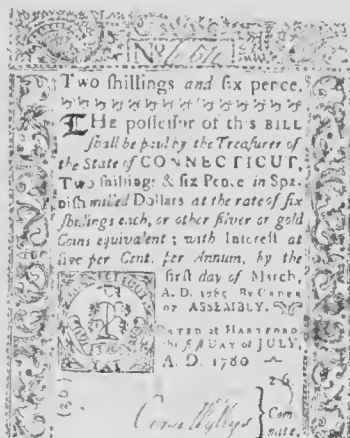 No
Two ſhillings and ſix pence.
THe poſſeſſor of this BILL
ſhall be paid by the Treaſurer of
the State of CONNECTICUT,
Two ſhillings & ſix Pence in Spa-
niſh milled Dollars at the rate of ſix
ſhillings each, or other ſilver or gold
Coins equivalent; with Intereſt at
five per Cent. per Annum, by the
firſt day of March,
A. D. 1785 By ORDER
OF ASSEMBLY.
DATED at HARTFORD
the firſt DAY of JULY,
A. D. 1780
2 6
(2 6)
Wyllys } Com
mitte.